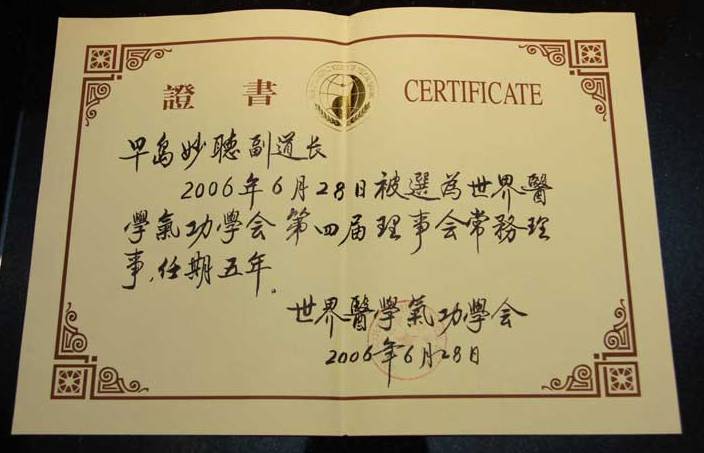 證書 CERTIFICATE
早島妙聴副道长
2006年6月28日被選為世界醫
學氣功學会第四届理事会常務理
事,任期五年。
世界醫學氣功學会
2006年6月28日